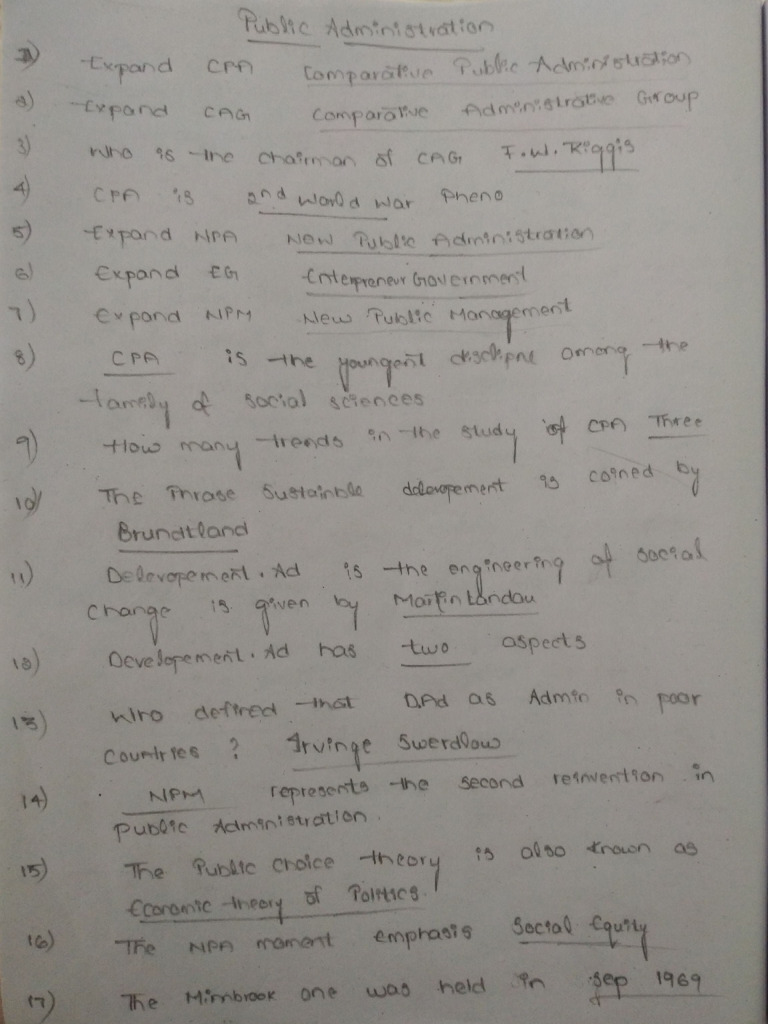 Public Administration
1) Expand CPA Comparative Public Administration
2) Expand CAG Comparative Administrative Group
3) Who is the chairman of CAG F.W. Riggis
4) CPA is 2nd World War Pheno
5) Expand NPA New Public Administration
6) Expand EG Enterpreneur Government
7) Expand NPM New Public Management
8) CPA is the youngest discipline among the
family of social sciences
9) How many trends in the study of CPA Three
10) The Phrase Sustainble delevopement is coined by
Brundtland
11) Delevopement. Ad is the engineering of social
change is given by Martin Landau
12) Developement. Ad has two aspects
13) Who defined that D.Ad as Admin in poor
countries ? Irvinge Swerdlow
14) NPM represents the second reinvention in
public Administration.
15) The Public choice theory is also known as
Economic theory of Politics.
16) The NPA moment emphasis Social Equity
17) The Minnbrook one was held in sep 1969